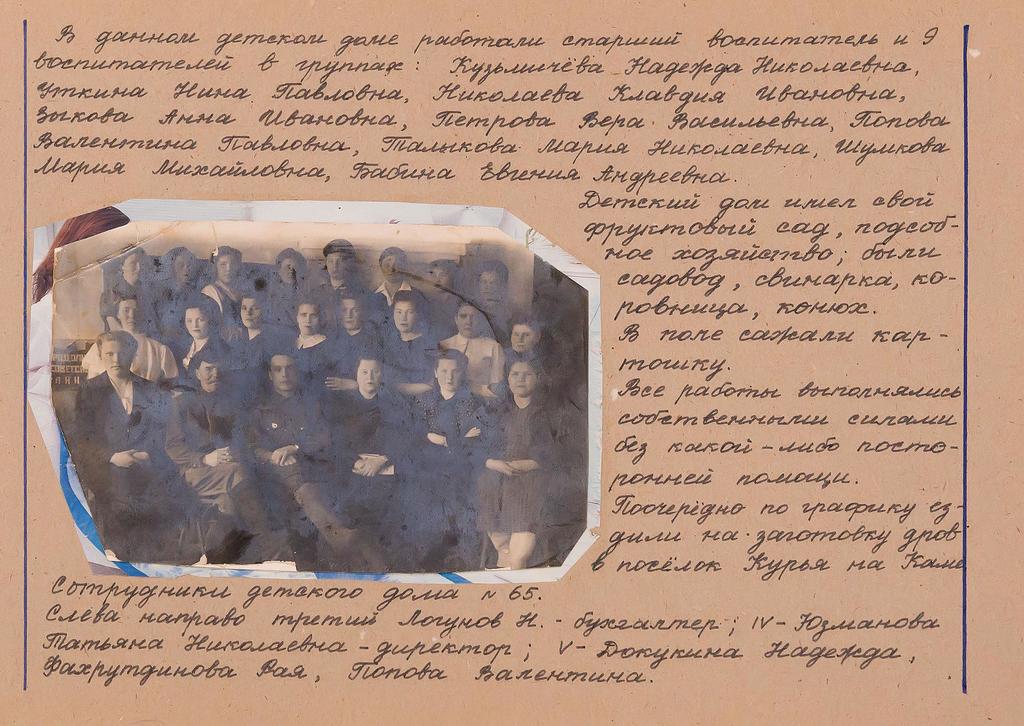 В данном детском доме работали старший воспитатель и 9
воспитателей в группах: Кузьмичёва Надежда Николаевна,
Уткина Нина Павловна, Николаева Клавдия Ивановна,
Зыкова Анна Ивановна, Петрова Вера Васильевна, Попова
Валентина Павловна, Талыкова Мария Николаевна, Шумкова
Мария Михайловна, Бабина Евгения Андреевна.
Детский дом имел свой
фруктовый сад, подсоб-
ное хозяйство; были
садовод, свинарка, ко-
ровница, конюх.
В поле сажали кар-
тошку.
Все работы выполнялись
собственными силами
без какой-либо посто-
ронней помощи.
Поочерёдно по графику ез-
дили на заготовку дров
в посёлок Курья на Каме
СОВЕТСК
Сотрудники детского дома № 65.
Слева направо третий Логунов Н. - бухгалтер; IV - Юзманова
Татьяна Николаевна - директор; V - Докукина Надежда,
Фахрутдинова Рая, Попова Валентина.